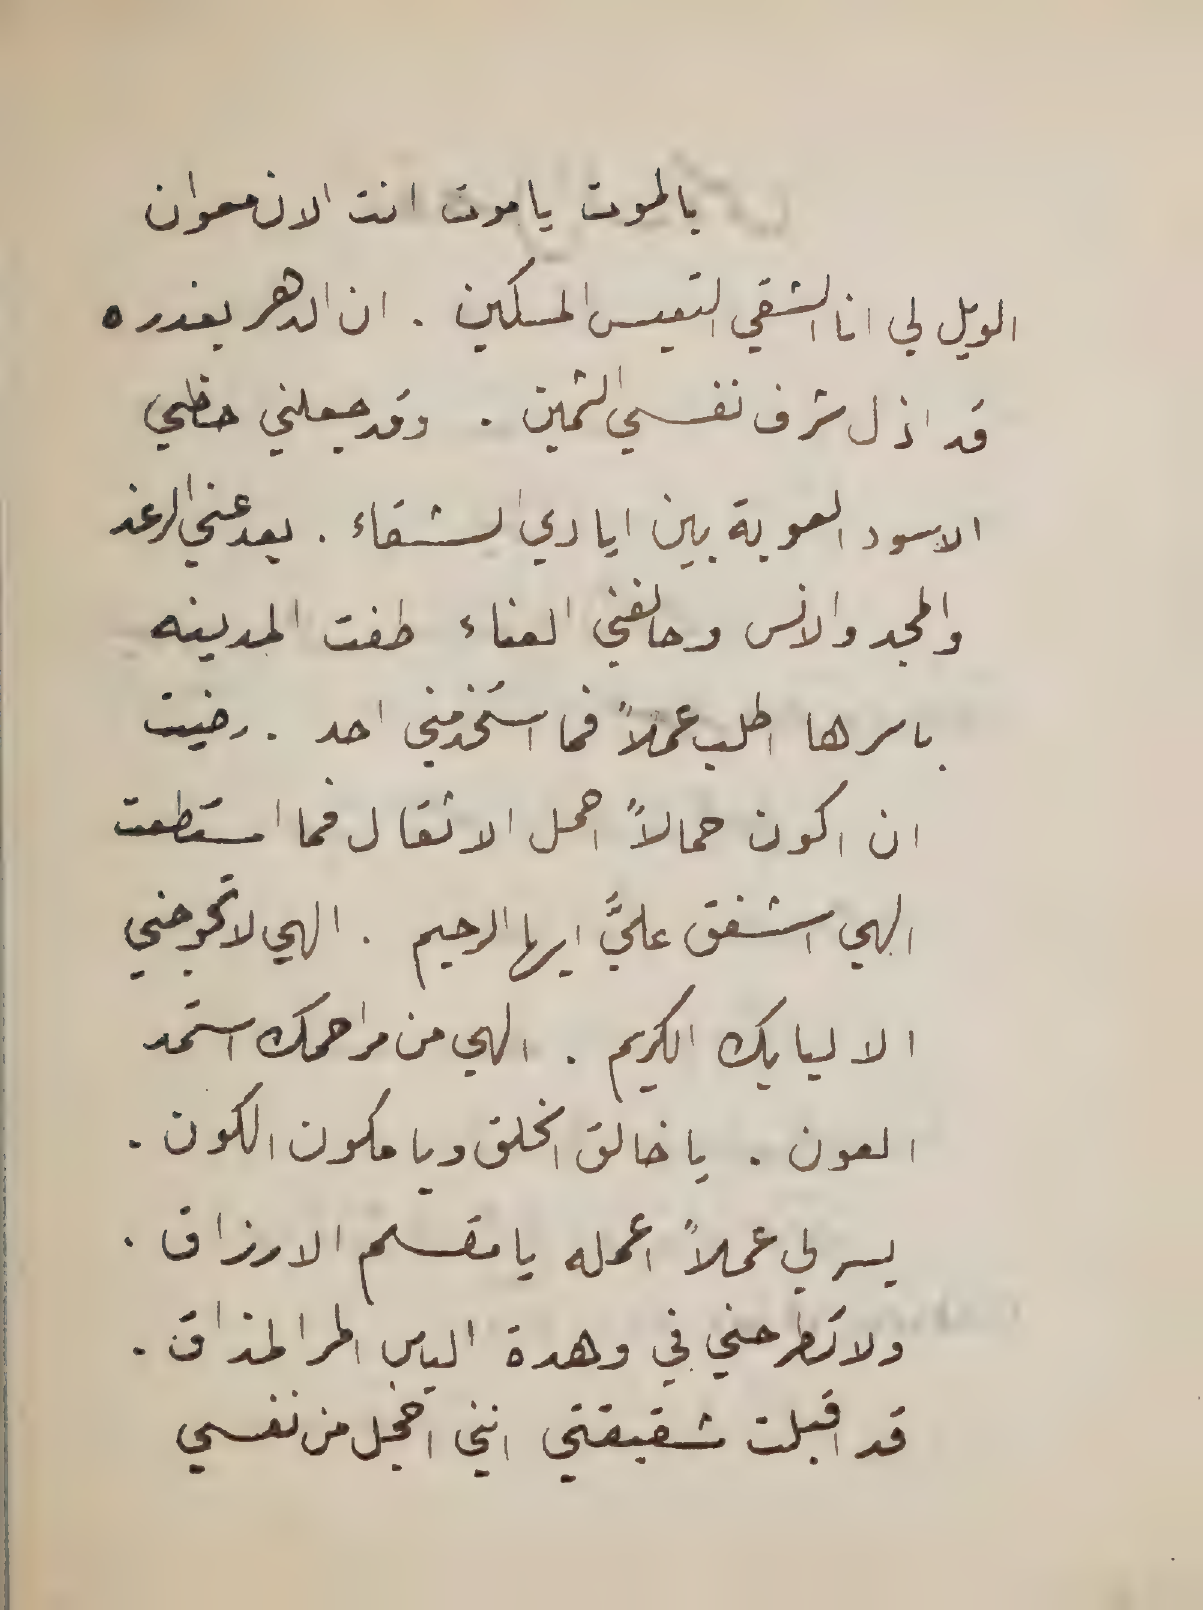 بالموت ياموت انت الان معوان
الويل لي انا الشقي التعيس المسكين . ان الدهر بغدره
قد اذل شرف نفسي الثمين . وقد جعلني حظي
الاسود العوبة بين ايادي الشقاء . بعد عني الرغد
والمجد والانس وحالفني العناء طفت المدينه
باسرها اطلب عملاً فما استخدمني احد . رضيت
ان اكون حمالاً احمل الاثقال فما استطعت
الهي اشفق عليَّ ايها الرحيم . الهي لا تحوجني
الا لبابك الكريم . الهي من مراحمك استمد
العون . يا خالق الخلق ويا مكون الكون .
يسر لي عملاً اعمله يا مقسم الارزاق .
ولا تطرحني في وهدة الياس المر المذاق .
قد اقبلت شقيقتي انني اخجل من نفسي